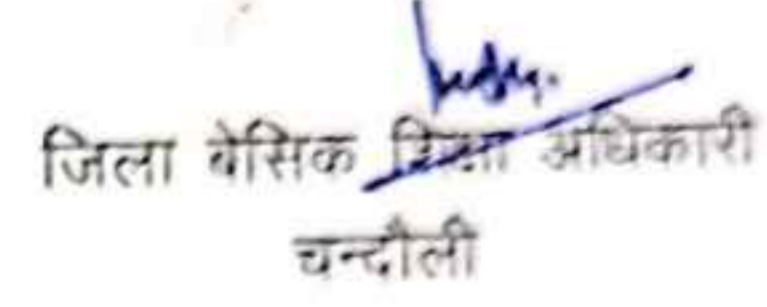 जिला बेसिक शिक्षा अधिकारी
चन्दौली